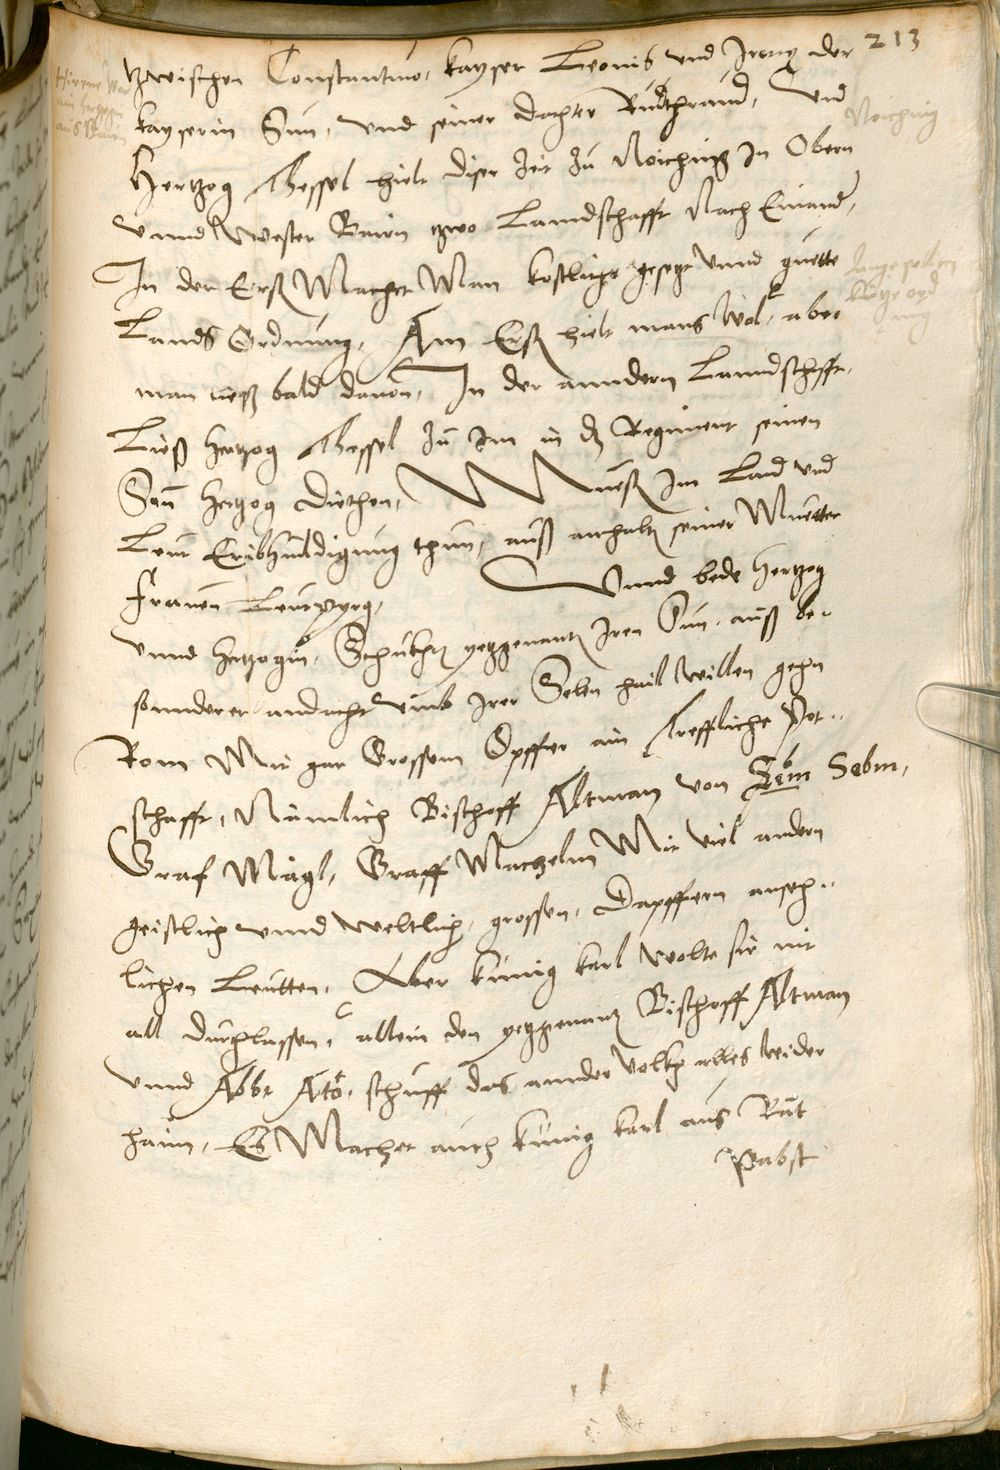 213
zwischen Constantino, kayser Leonis vnd Ireny der
kayserin Sun, vnd seiner dochter Rudthraud, Vnd
Hertzog Thessel hielt diser Zeit zu Noiching In Obern
vnnd Wester Bairn zwo Landschafft Nach Einander,
In der Erst Machet Man kostliche gesetz vnnd guette
Lands Ordnung, Am Erst hielt mans Wol, aber
man ließ bald dauon, In der anndern Lanndschafft,
Ließ hertzog Thessel zu Im in dz Regiment seinen
Sun hertzog Diethen, Muest Im Land vnd
Leut Eribhuldigung thun, auß anhaltn seiner Muetter
frauen Leutpyrg, Vnnd bede hertzog
vnnd hertzogin, Schickhtn yetzgenantn Iren Sun, auß be
sonnderer andacht vmb Irer Selen hail Willen gehn
Rom Mit gar Grossem Opffer ain Treffliche Pot..
schafft, Nämlich Bischoff Altman von Sebm,
Graf Mägl, Graff Machelm Mit viel andern
geistlich vnnd weltlich, grossen, Dapffern anseh..
lichen Leutten, Aber künig karl wolte sie nit
all durchlassen, allein den yetzgenantn Bischoff Altman
vnnd Abbt Ato, schuff das annder Volkh alles wider
haim, Es Machet auch künig karl aus Rat
Pabst
Noiching